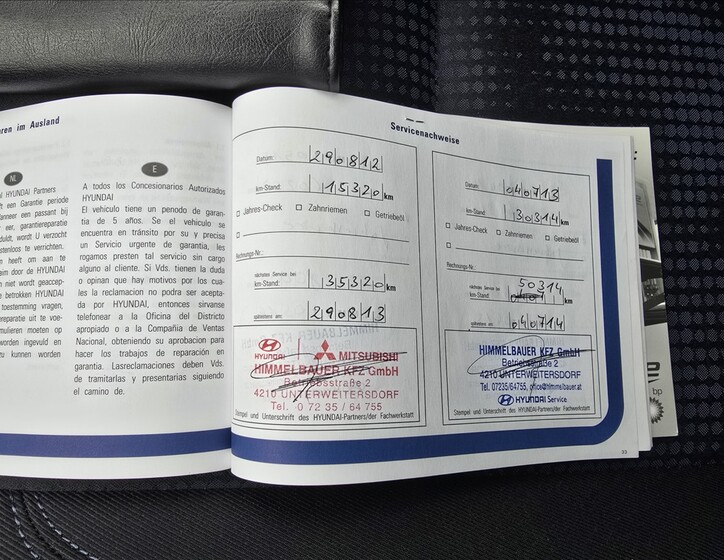 ren im Ausland
NL
HYUNDAI Partners
ft een Garantie periode
anneer een passant bij
eer, garantiereparatie
duldt, wordt U verzocht
tenloos te verrichten.
en heeft om aan te
im door de HYUNDAI
niet wordt geaccep-
betrokken HYUNDAI
toestemming vragen,
reparatie uit te voe-
mulieren moeten op
worden ingevuld en
zu kunnen worden
E
A todos los Concesionarios Autorizados
HYUNDAI
El vehículo tiene un penodo de garan-
tia de 5 años. Se el vehículo se
encuentra en tránsito por su y precisa
un Servicio urgente de garantia, les
rogamos presten tal servicio sin cargo
alguno al cliente. Si Vds. tienen la duda
o opinan que hay motivos por los cua-
les la reclamacion no podra ser acepta-
da por HYUNDAI, entonces sirvanse
telefonear a la Oficina del Districto
apropiado o a la Compañia de Ventas
Nacional, obteniendo su aprobacion para
hacer los trabajos de reparación en
garantia. Lasreclamaciones deben Vds.
de tramitarlas y presentarias siguiendo
el camino de.
Servicenachweise
Datum: 290812
km-Stand: 15320 km
Jahres-Check Zahnriemen Getriebeöl
Rechnungs-Nr.:
nächstes Service bei
km-Stand: 35320 km
spätestens am: 290813
HYUNDAI MITSUBISHI
HIMMELBAUER KFZ GmbH
Betriebsstraße 2
4210 UNTERWEITERSDORF
Tel. 0 72 35 / 64 755
Stempel und Unterschrift des HYUNDAI-Partners/der Fachwerkstatt
Datum: 040713
km-Stand: 30314 km
Jahres-Check Zahnriemen Getriebeöl
Rechnungs-Nr.:
nächstes Service bei 50314
km-Stand km
spätestens am: 040714
HIMMELBAUER KFZ GmbH
Betriebsstraße 2
4210 UNTERWEITERSDORF
Tel. 07235/64755, office@himmelbauer.at
HYUNDAI Service
Stempel und Unterschrift des HYUNDAI-Partners/der Fachwerkstatt
33
bp